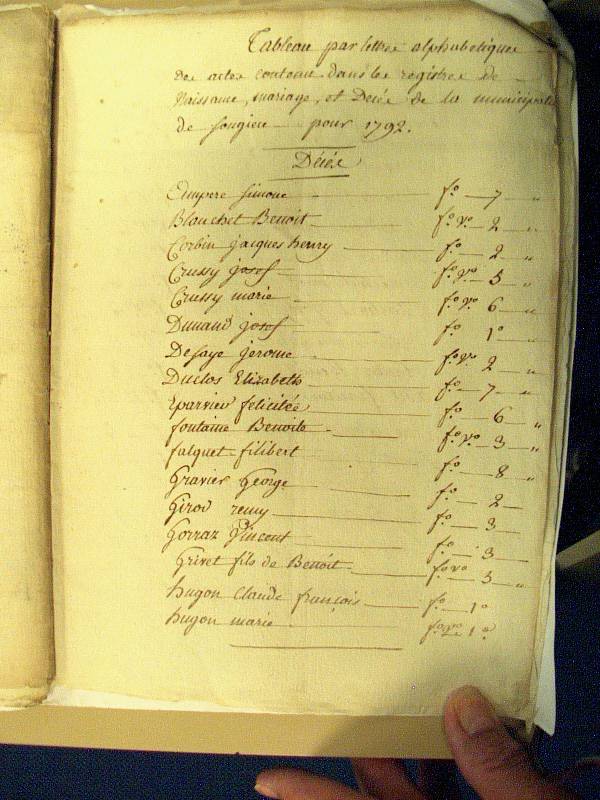 Tableau par lettres alphabetiques
des actes contenu dans les registres de
Naissance, mariage, et Décès de la municipalité
de songieu pour 1792.
Décès
Empere simone fo 7 "
Blanchet Benoit fo vo 2 "
Corbin jacques henry fo 2 "
Crussy josef fo vo 5 "
Crussy marie fo vo 6 "
Dunand josef fo 1o "
Defaye jerome fo vo 2 "
Duclos Elizabeth fo 7 "
Eparvier felicitée fo 6 "
fontaine Benoite fo vo 3 "
falquet filibert fo 8 "
Gravier George fo 2 "
Girod remy fo 3
Gorraz Vincent fo 3
Grivet fils de Benoit fo vo 3 "
hugon claude françois fo 1o
hugon marie fo vo 1o